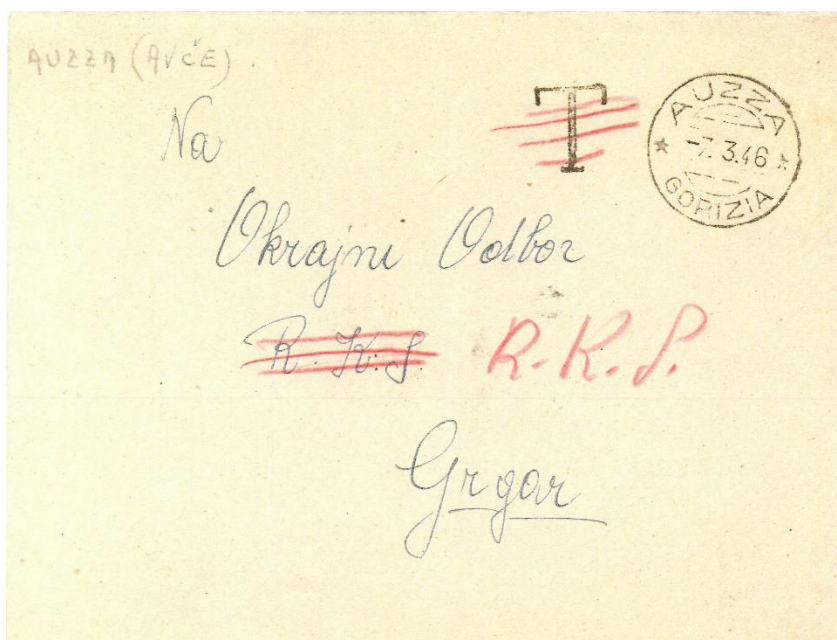 AUZZA (AVČE)
T
AUZZA
-7.3.46
GORIZIA
Na
Okrajni Odbor
R.K.S. R.K.S.
Grgar